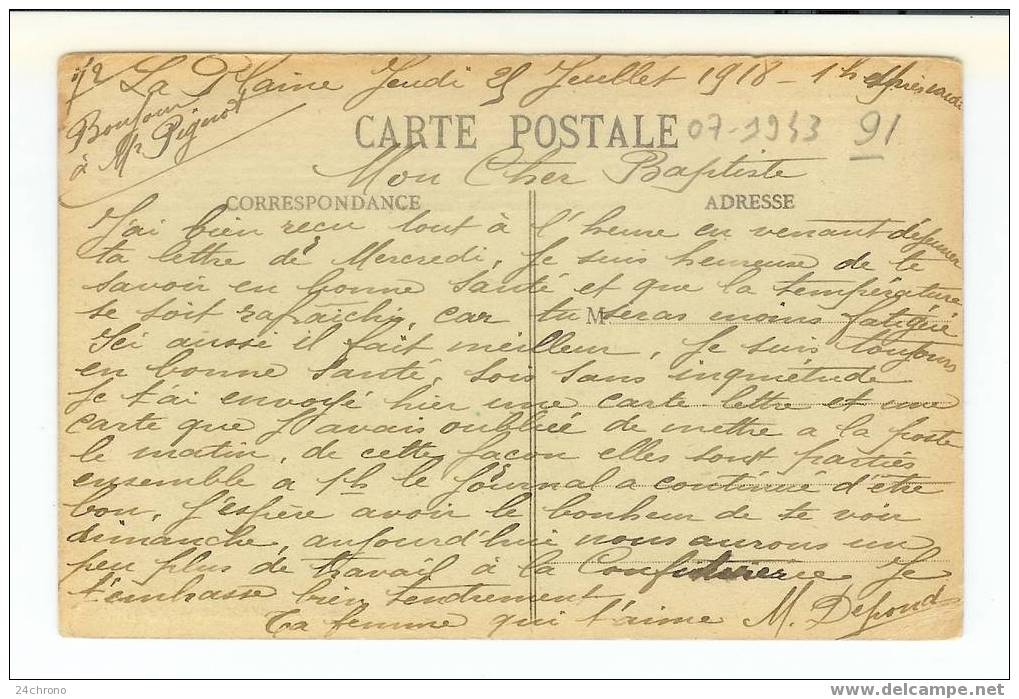 La Plaine Jeudi 25 Juillet 1918 - 1h après midi
Bonjour
à Mr Pignot
CARTE POSTALE
07-1943 91
Mon Cher Baptiste
CORRESPONDANCE
ADRESSE
J'ai bien reçu tout à l'heure en venant déjeuner
ta lettre de Mercredi, Je suis heureuse de te
savoir en bonne santé et que la température
se soit rafraîchi, car tu seras moins fatigué
M
Ici aussi il fait meilleur, Je suis toujours
en bonne santé, sois sans inquiétude
Je t'ai envoyé hier une carte-lettre et une
carte que J'avais oubliée de mettre a la poste
le matin, de cette façon elles sont parties
ensemble a 1h le Journal a continué d'être
bon, J'espère avoir le bonheur de te voir
dimanche, aujourd'hui nous aurons un
peu plus de travail à la Confiturerie Je
t'embrasse bien tendrement
Ta femme qui t'aime M. Depond
24chrono
www.delcampe.net